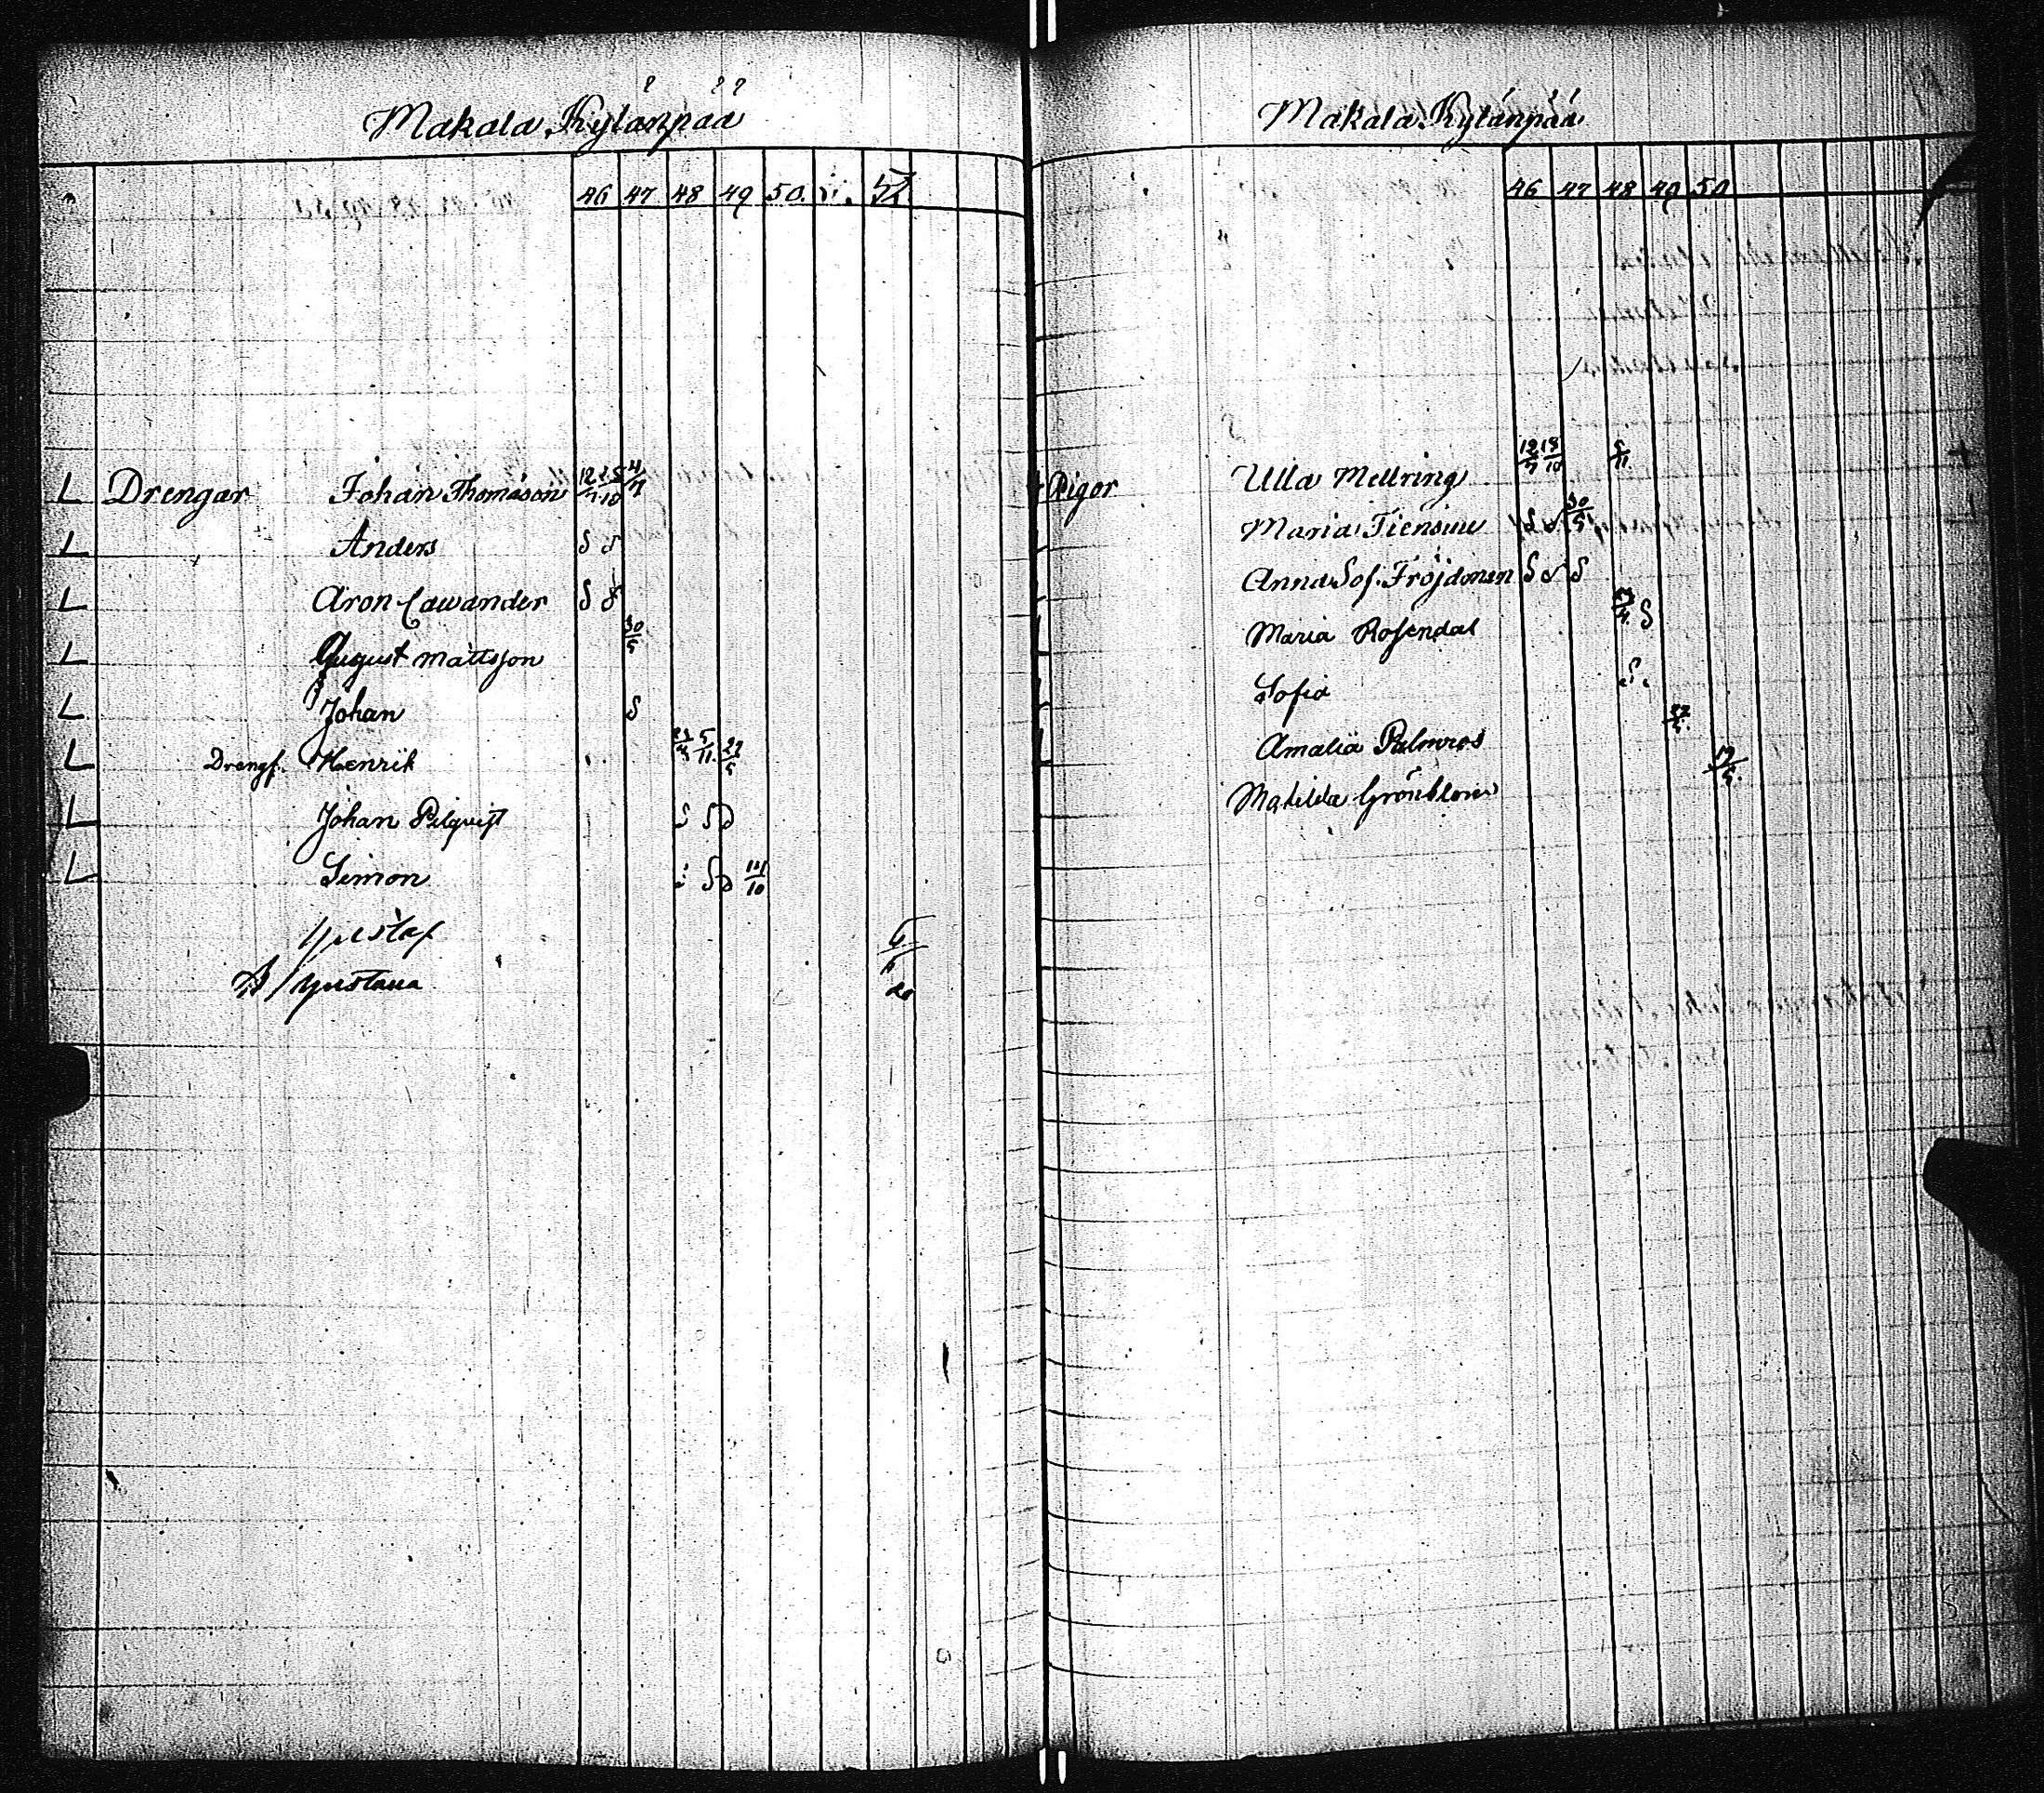 Makala Kylänpää
46 47 48 49 50. 51. 52
Drengar Johan Thomasson 12/7 25/10 4/7
Anders S S
Aron Cawander S S
August Mattsson 30/5
Johan S
Drengf. Henrik 23/4 5/11 27/5
Johan Pilqvist S S D
Simon S S D 14/10
Gustaf
Gustava
Makala Kylänpää
46 47 48 49 50
Pigor Ulla Mellring 12/7 18/10 5/11
Maria Tiensuu S S 30/5
Anna Sof. Fröjdman S S S
Maria Rosendal S
Sofia S.
Amalia Palmros
Matilda Grönblom